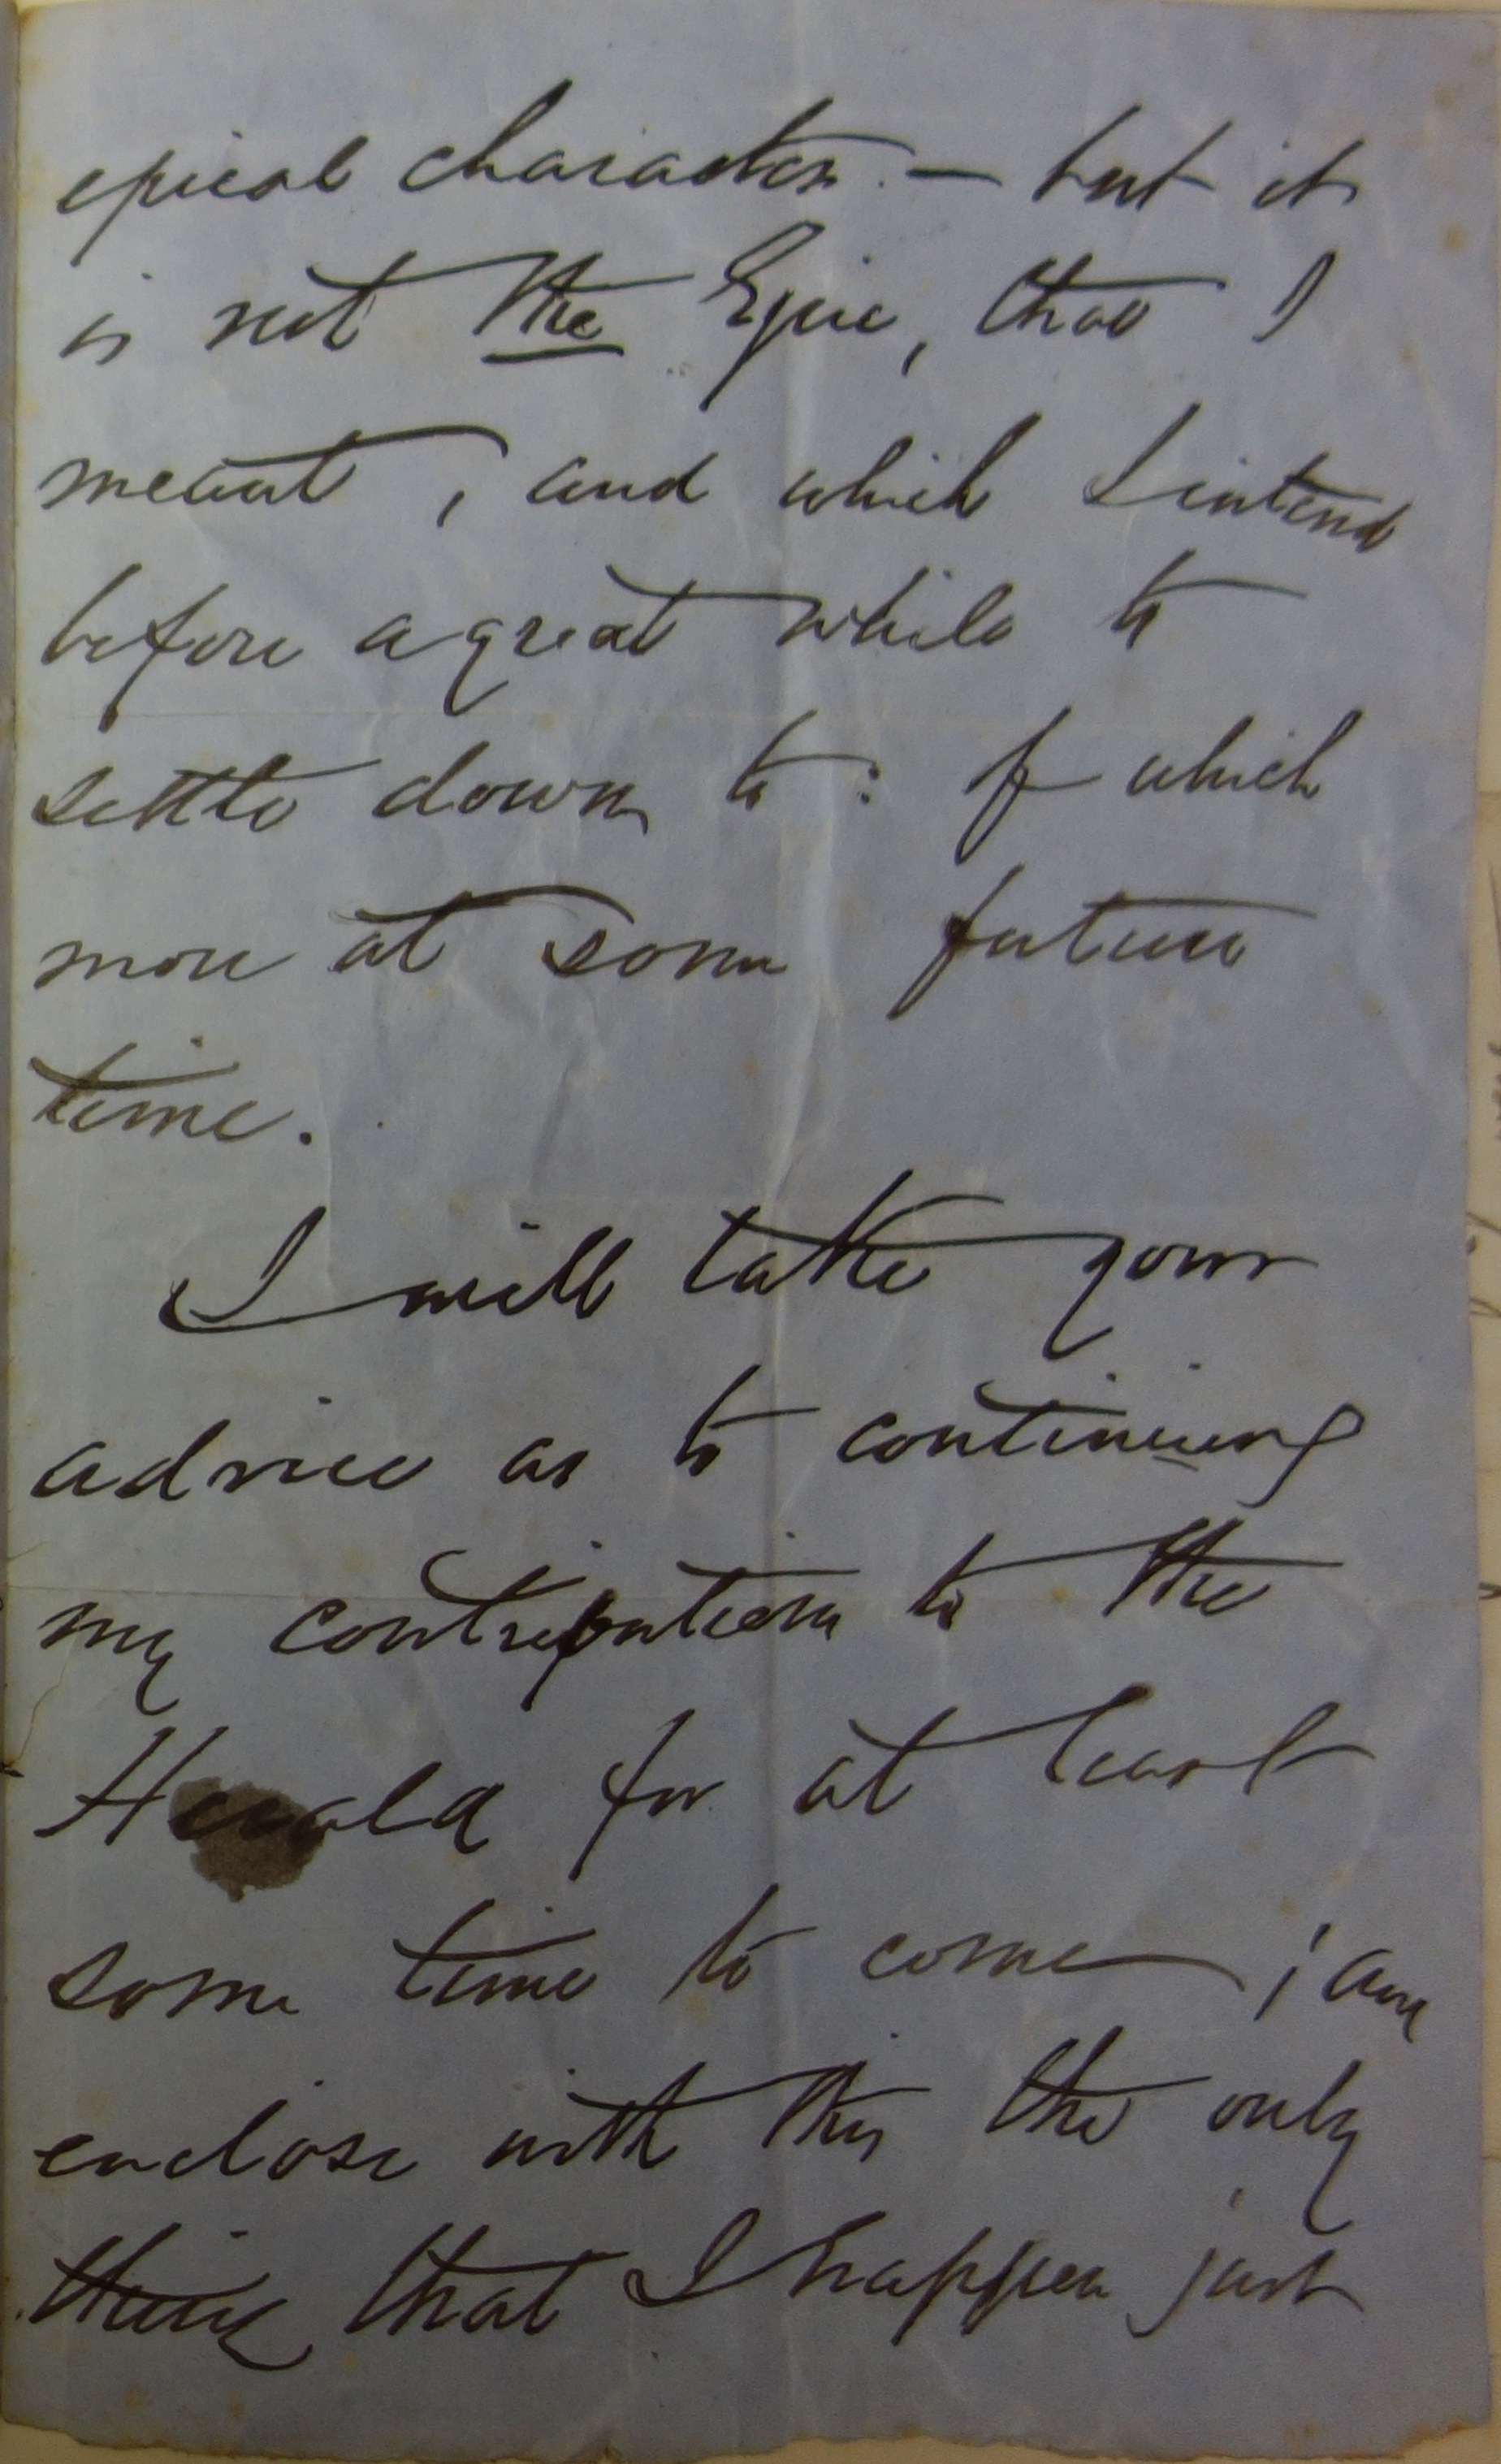 epical character. — but it
is not the Epic, that I
meant, and which I intend
before a great while to
settle down to: of which
more at some future
time.
I will take your
advice as to continuing
my contributions to the
Herald for at least
some time to come; and
enclose with this the only
thing that I happen just